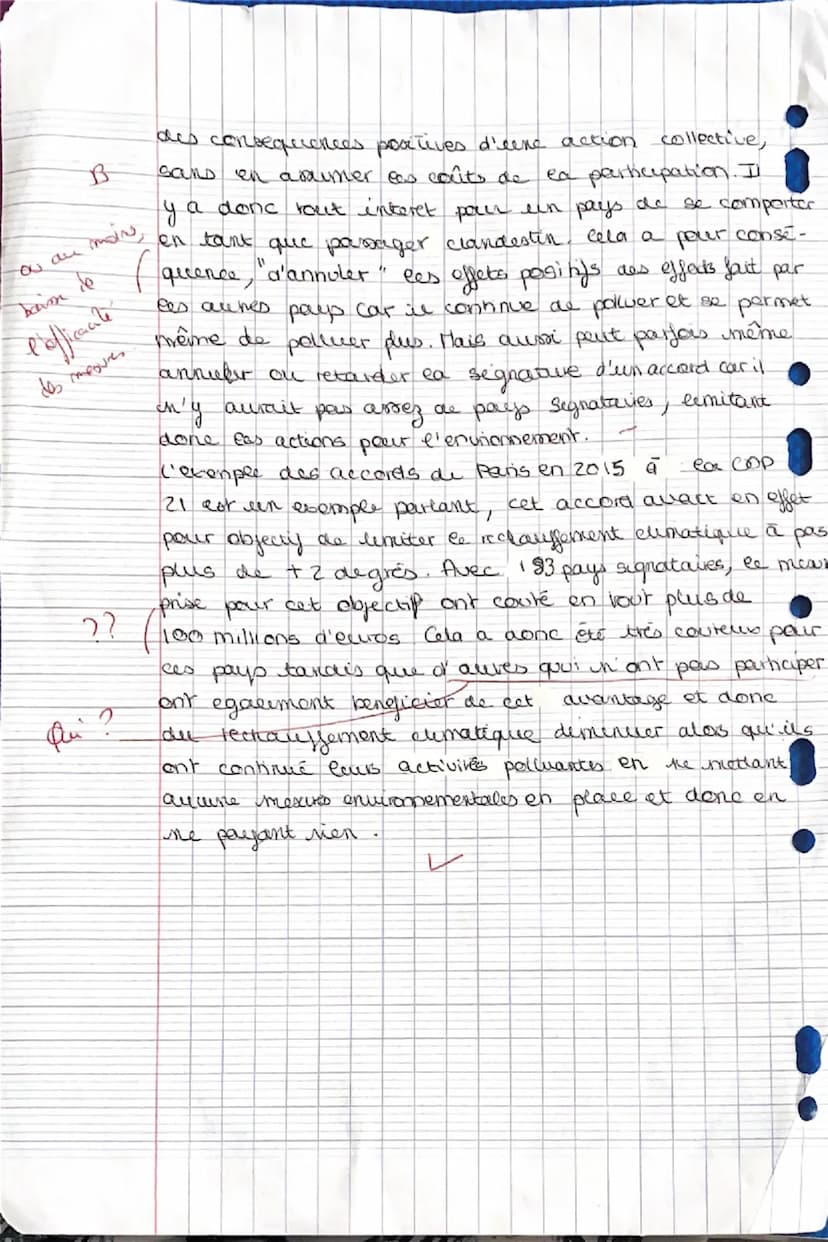 des consequences positives d'une action collective,
B
sans en assumer les coûts de la participation. Il
y a donc tout interet pour un pays de se comporter
ou au moins,
en tant que passager clandestin. Cela a pour consé-
quence, "d'annuler" les effets positifs des effods fait par
baisse de
les autres pays car il continue de polluer et se permet
l'efficacité
même de polluer plus. Mais aussi peut parfois même
des mesures
annuler ou retarder la signature d'un accord car il
n'y aurait pas assez de pays signataires, limitant
donc les actions pour l'environnement.
L'exemple des accords de Paris en 2015 à la COP
21 est un exemple parlant, cet accord avait en effet
pour objectif de limiter le rechauffement climatique à pas
plus de +2 degrés. Avec 193 pays signataires, le mesur
prise pour cet objectif ont couté en tout plus de
??
100 millions d'euros Cela a donc été très couteux pour
ces pays tandis que d'autres qui n'ont pas participer
ont egalement beneficier de cet avantage et donc
Qui ?
du rechauffement climatique diminuer alors qu'ils
ont continué leurs activités polluantes en ne mettant
aucune mesures environnementales en place et donc en
ne payant rien.